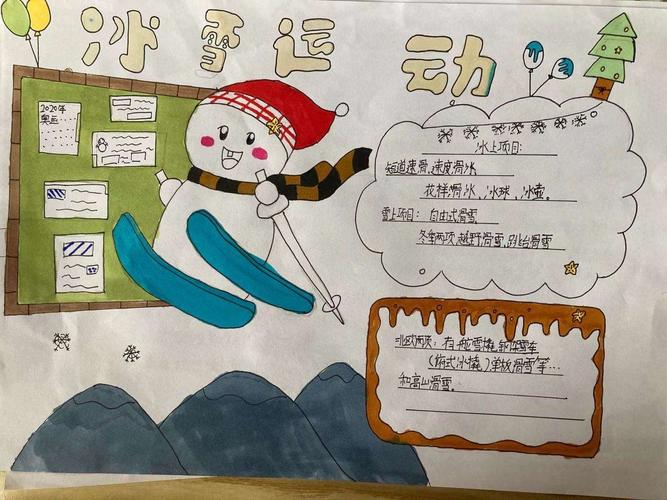 冰雪运动
2020年
奥运……
冰上项目:
知道速滑,速度滑冰
花样滑冰、冰球、冰壶。
雪上项目:自由式滑雪
冬季两项,越野滑雪,跳台滑雪
北欧两项:有舵雪橇 钢架雪车
(俯式冰橇)单板滑雪等…
和高山滑雪。